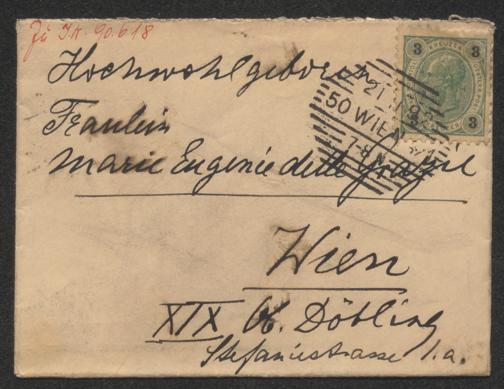 Zu I.N. 90.618
Hochwohlgeboren
Fräulein
Marie Eugenie delle Grazie
Wien
XIX Ob. Döbling
Stefaniestrasse 1.a.
3 KREUZER 3
3 3
50 WIEN
7-8 N